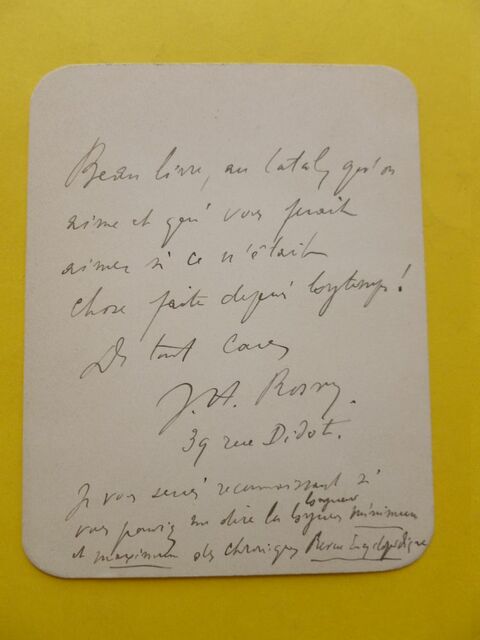 Beau livre, au qu'on
aime et qui vous ferait
aimer si ce n'était
chose faite depuis longtemps!
De tout cœur
J. H. Rosny.
39 rue Didot.
Je vous serais reconnaissant si
longueur
vous pouviez me dire la minimum
et maximum des chroniques Revue Encyclopédique